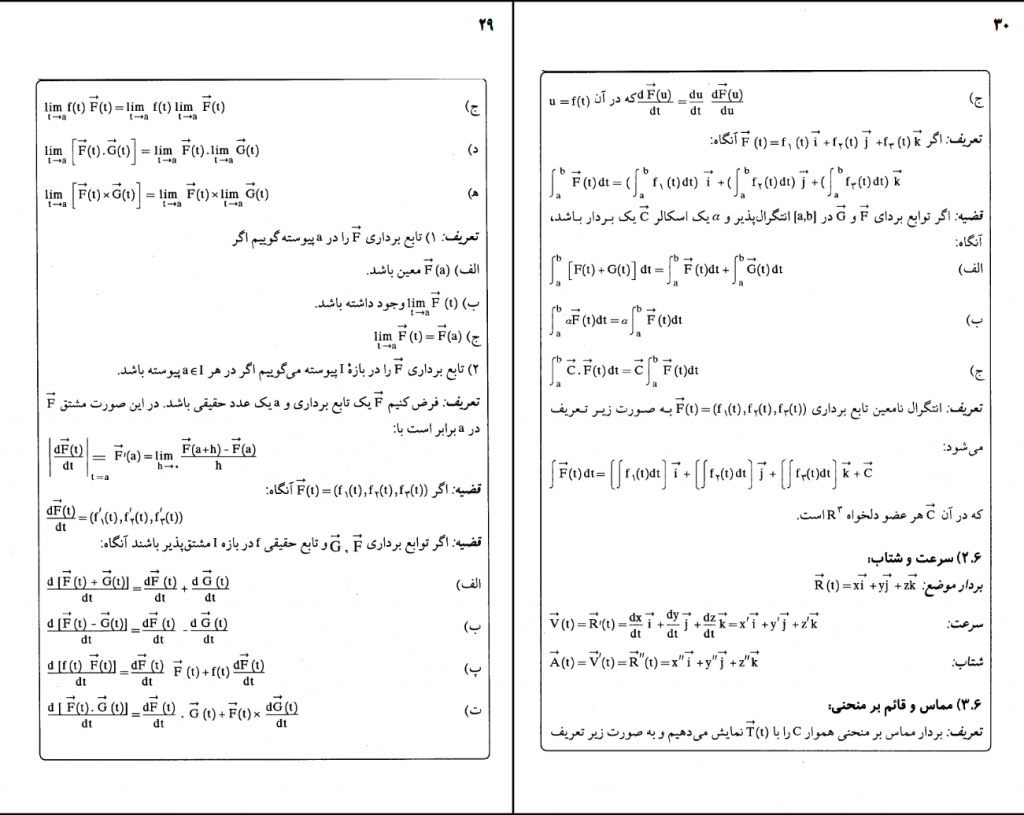 ۲۹
ج) lim t→a f(t) F⃗(t) = lim t→a f(t) lim t→a F⃗(t)
د) lim t→a [F⃗(t).G⃗(t)] = lim t→a F⃗(t).lim t→a G⃗(t)
ه) lim t→a [F⃗(t)×G⃗(t)] = lim t→a F⃗(t)×lim t→a G⃗(t)
تعریف: ۱) تابع برداری F⃗ را در a پیوسته گوییم اگر
الف) F⃗(a) معین باشد.
ب) lim t→a F⃗(t) وجود داشته باشد.
ج) lim t→a F⃗(t) = F⃗(a)
۲) تابع برداری F⃗ را در بازهٔ I پیوسته می‌گوییم اگر در هر a∈I پیوسته باشد.
تعریف: فرض کنیم F⃗ یک تابع برداری و a یک عدد حقیقی باشد. در این صورت مشتق F⃗
در a برابر است با:
|dF⃗(t)/dt| t=a = F⃗′(a) = lim h→۰ (F⃗(a+h) - F⃗(a))/h
قضیه: اگر F⃗(t)=(f۱(t),f۲(t),f۳(t)) آنگاه:
dF⃗(t)/dt = (f′۱(t),f′۲(t),f′۳(t))
قضیه: اگر توابع برداری F⃗ , G⃗ و تابع حقیقی f در بازه I مشتق‌پذیر باشند آنگاه:
الف) d[F⃗(t) + G⃗(t)]/dt = dF⃗(t)/dt + dG⃗(t)/dt
ب) d[F⃗(t) - G⃗(t)]/dt = dF⃗(t)/dt - dG⃗(t)/dt
پ) d[f(t) F⃗(t)]/dt = dF⃗(t)/dt F⃗(t)+f(t) dF⃗(t)/dt
ت) d[F⃗(t). G⃗(t)]/dt = dF⃗(t)/dt . G⃗(t)+F⃗(t)× dG⃗(t)/dt
۳۰
ج) dF⃗(u)/dt = du/dt dF⃗(u)/du که در آن u=f(t)
تعریف: اگر F⃗(t)=f۱(t) i⃗ +f۲(t) j⃗ +f۳(t) k⃗ آنگاه:
∫_a^b F⃗(t)dt = (∫_a^b f۱(t)dt) i⃗ +(∫_a^b f۲(t)dt) j⃗ +(∫_a^b f۳(t)dt) k⃗
قضیه: اگر توابع بردای F⃗ و G⃗ در [a,b] انتگرال‌پذیر و α یک اسکالر C⃗ یک بردار باشد،
آنگاه:
الف) ∫_a^b [F(t)+G(t)] dt = ∫_a^b F⃗(t)dt + ∫_a^b G⃗(t)dt
ب) ∫_a^b αF⃗(t)dt = α∫_a^b F⃗(t)dt
ج) ∫_a^b C⃗.F⃗(t)dt = C⃗∫_a^b F⃗(t)dt
تعریف: انتگرال نامعین تابع برداری F⃗(t)=(f۱(t),f۲(t),f۳(t)) به صورت زیر تعریف
می‌شود:
∫F⃗(t)dt = [∫f۱(t)dt] i⃗ + [∫f۲(t)dt] j⃗ + [∫f۳(t)dt] k⃗ + C⃗
که در آن C⃗ هر عضو دلخواه R۳ است.
۲.۶) سرعت و شتاب:
بردار موضع: R⃗(t)=xi⃗ +yj⃗ +zk⃗
سرعت: V⃗(t)=R⃗′(t)= dx/dt i⃗ + dy/dt j⃗ + dz/dt k⃗ =x′i⃗ +y′j⃗ +z′k⃗
شتاب: A⃗(t)=V⃗′(t)=R⃗″(t)=x″i⃗ +y″j⃗ +z″k⃗
۳.۶) مماس و قائم بر منحنی:
تعریف: بردار مماس بر منحنی هموار C را با T⃗(t) نمایش می‌دهیم و به صورت زیر تعریف